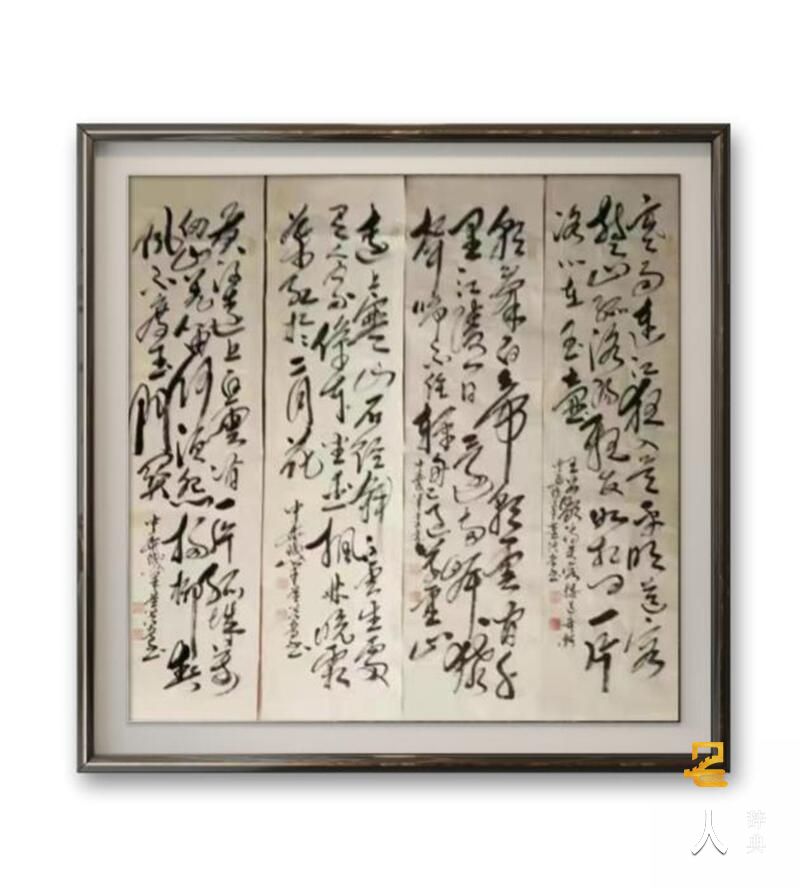 寒雨连江夜入吴平明送客
楚山孤洛阳亲友如相问一片
冰心在玉壶
王昌龄芙蓉楼送辛渐
朝辞白帝彩云间千
里江陵一日还两岸猿
声啼不住轻舟已过万重山
远上寒山石径斜白云生处
有人家停车坐爱枫林晚霜
叶红于二月花
黄河远上白云间一片孤城万
仞山羌笛何须怨杨柳春
风不度玉门关
人
辞典